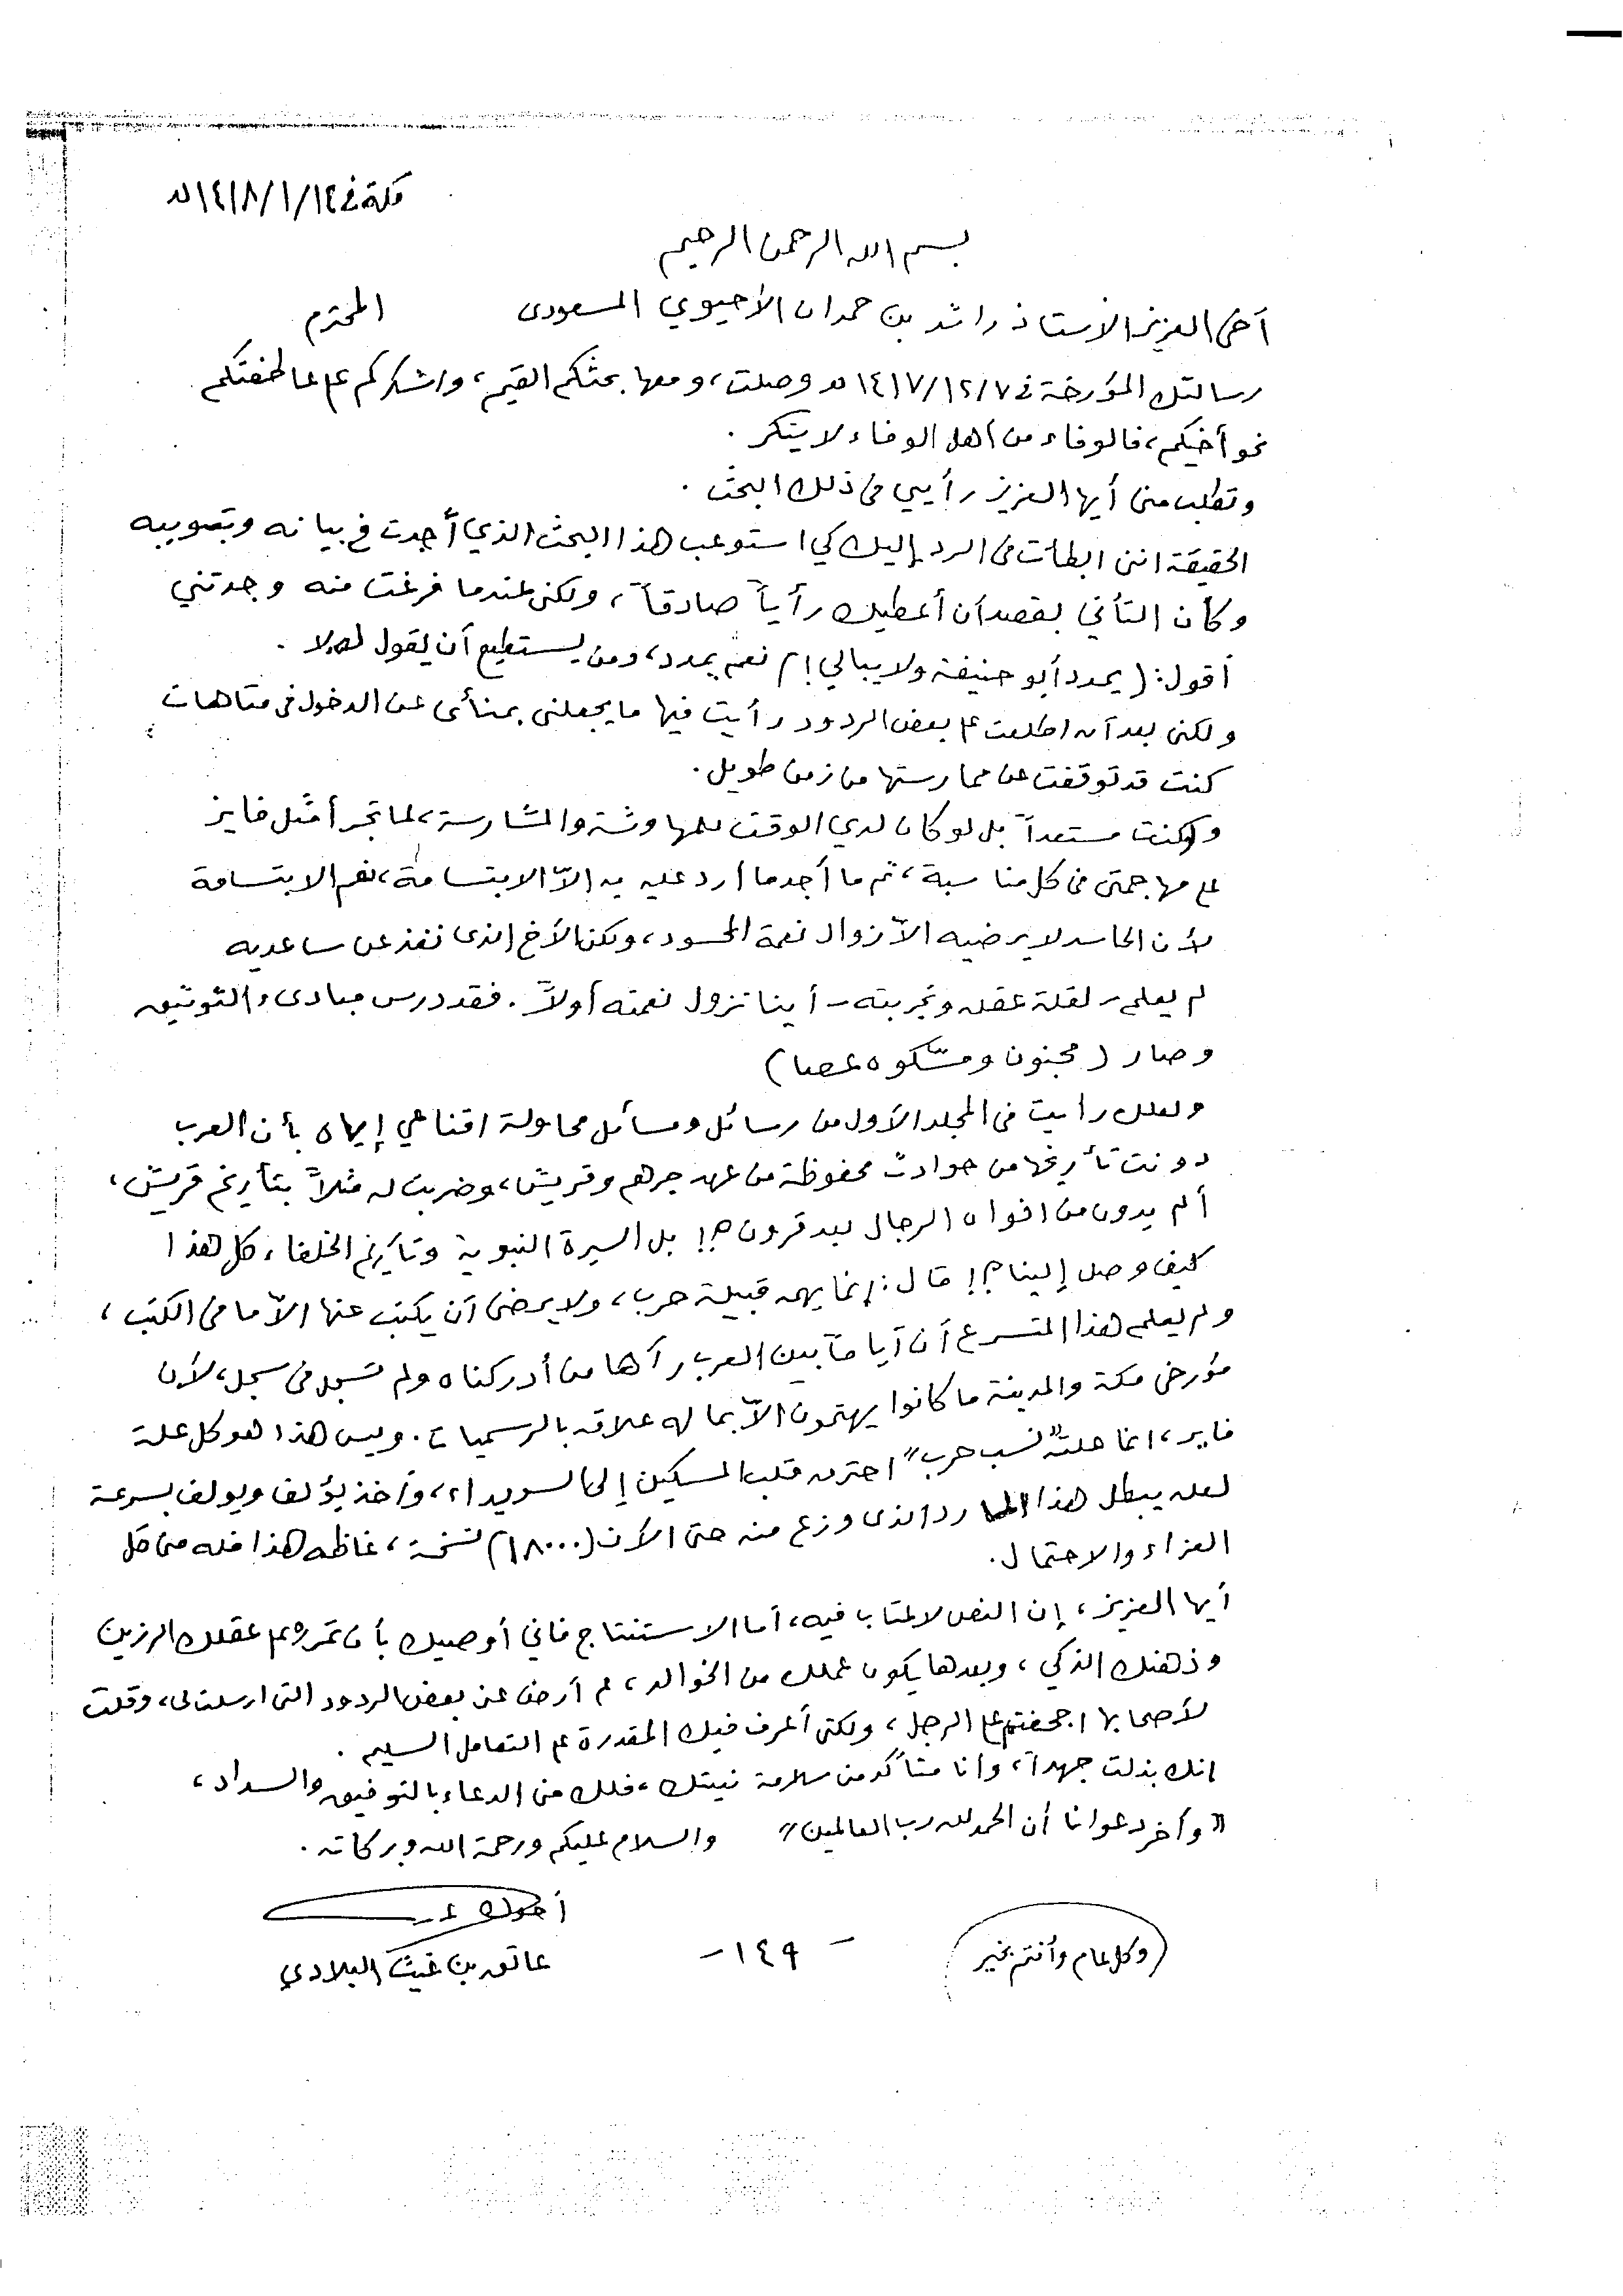 مكة في ١٤١٨/١/١٤هـ
بسم الله الرحمن الرحيم
أخي العزيز الأستاذ راشد بن حمدان الأحيوي المسعودي المحترم
رسالتك المؤرخة في ١٤١٧/١٢/٧هـ وصلت، ومعها بحثكم القيم، واشكركم على عاطفتكم
نحو أخيكم، فالوفاء من أهل الوفاء لا ينكر.
وتطلب مني أيها العزيز رأيي في ذلك البحث.
الحقيقة انني ابطأت في الرد إليك كي استوعب هذا البحث الذي أجدت في بيانه وتصويبه
وكان التأني بقصد أن أعطيك رأياً صادقاً، ولكني عندما فرغت منه وجدتني
أقول: (يمدد أبو حنيفة ولا يبالي!) نعم يمدد، ومن يستطيع أن يقول له لا.
ولكني بعد أن اطلعت على بعض الردود رأيت فيها ما يجعلني بمنأى عن الدخول في متاهات
كنت قد توقفت عن ممارستها من زمن طويل.
ولو كنت مستعداً بل لو كان لدي الوقت للمهاوشة والمشارسة، لما تجرأ مثل فايز
على مهاجمتي في كل مناسبة، ثم ما أجد ما أرد عليه به إلاّ الابتسامة، نعم الابتسامة
لأن الحاسد لا يرضيه الاّ زوال نعمة المحسود، ولكن الأخ الذي نفذ عن ساعديه
لم يعلم - لقلة عقله وتجربته - أينا تزول نعمته أولاً. فقد درس مبادىء التوثيق
وصار (مجنون ومسّكوه عصا)
ولعلك رأيت في المجلد الأول من رسائل ومسائل محاولة اقناعي إياه بأن العرب
دونت تأريخها من حوادث محفوظة من عهد جرهم وقريش، وضربت له مثلاً بتأريخ قريش،
ألم يدون من افواه الرجال بعد قرون؟! بل السيرة النبوية وتأريخ الخلفاء، كل هذا
كيف وصل إلينا؟! قال: إنما يهمه قبيلة حرب، ولا يرضى أن يكتب عنها الاّ ما في الكتب،
ولم يعلم هذا المتسرع أن أياماً بين العرب رآها من أدركناه ولم تسجل في سجل، لأن
مؤرخي مكة والمدينة ما كانوا يهتمون الاّ بما له علاقة بالرسميات. وليس هذا هو كل علة
فايز، انما علته "نسب حرب" احترق قلب المسكين إلى السويداء، وأخذ يؤلف ويولف بسرعة
لعله يبطل هذا المارد الذي وزع منه حتى الآن (١٨٠٠٠) نسخة، غاظه هذا فله مني كل
العزاء والاحتمال.
أيها العزيز، إن النص لا يحتاب فيه، أما الاستنتاج فاني أوصيك بأن تمرره على عقلك الرزين
وذهنك الذكي، وبعدها يكون عملك من الخوالد، لم أرض عن بعض الردود التي ارسلت لي، وقلت
لأصحابها اجحفتم على الرجل، ولكني أعرف فيك المقدرة على التعامل السليم.
انك بذلت جهداً، وانا متأكد من سلامة نيتك، فلك مني الدعاء بالتوفيق والسداد،
"وآخر دعوانا أن الحمد لله رب العالمين" والسلام عليكم ورحمة الله وبركاته.
أخوك
عاتق بن غيث البلادي
- ١٤٩ -
(وكل عام وأنتم بخير)